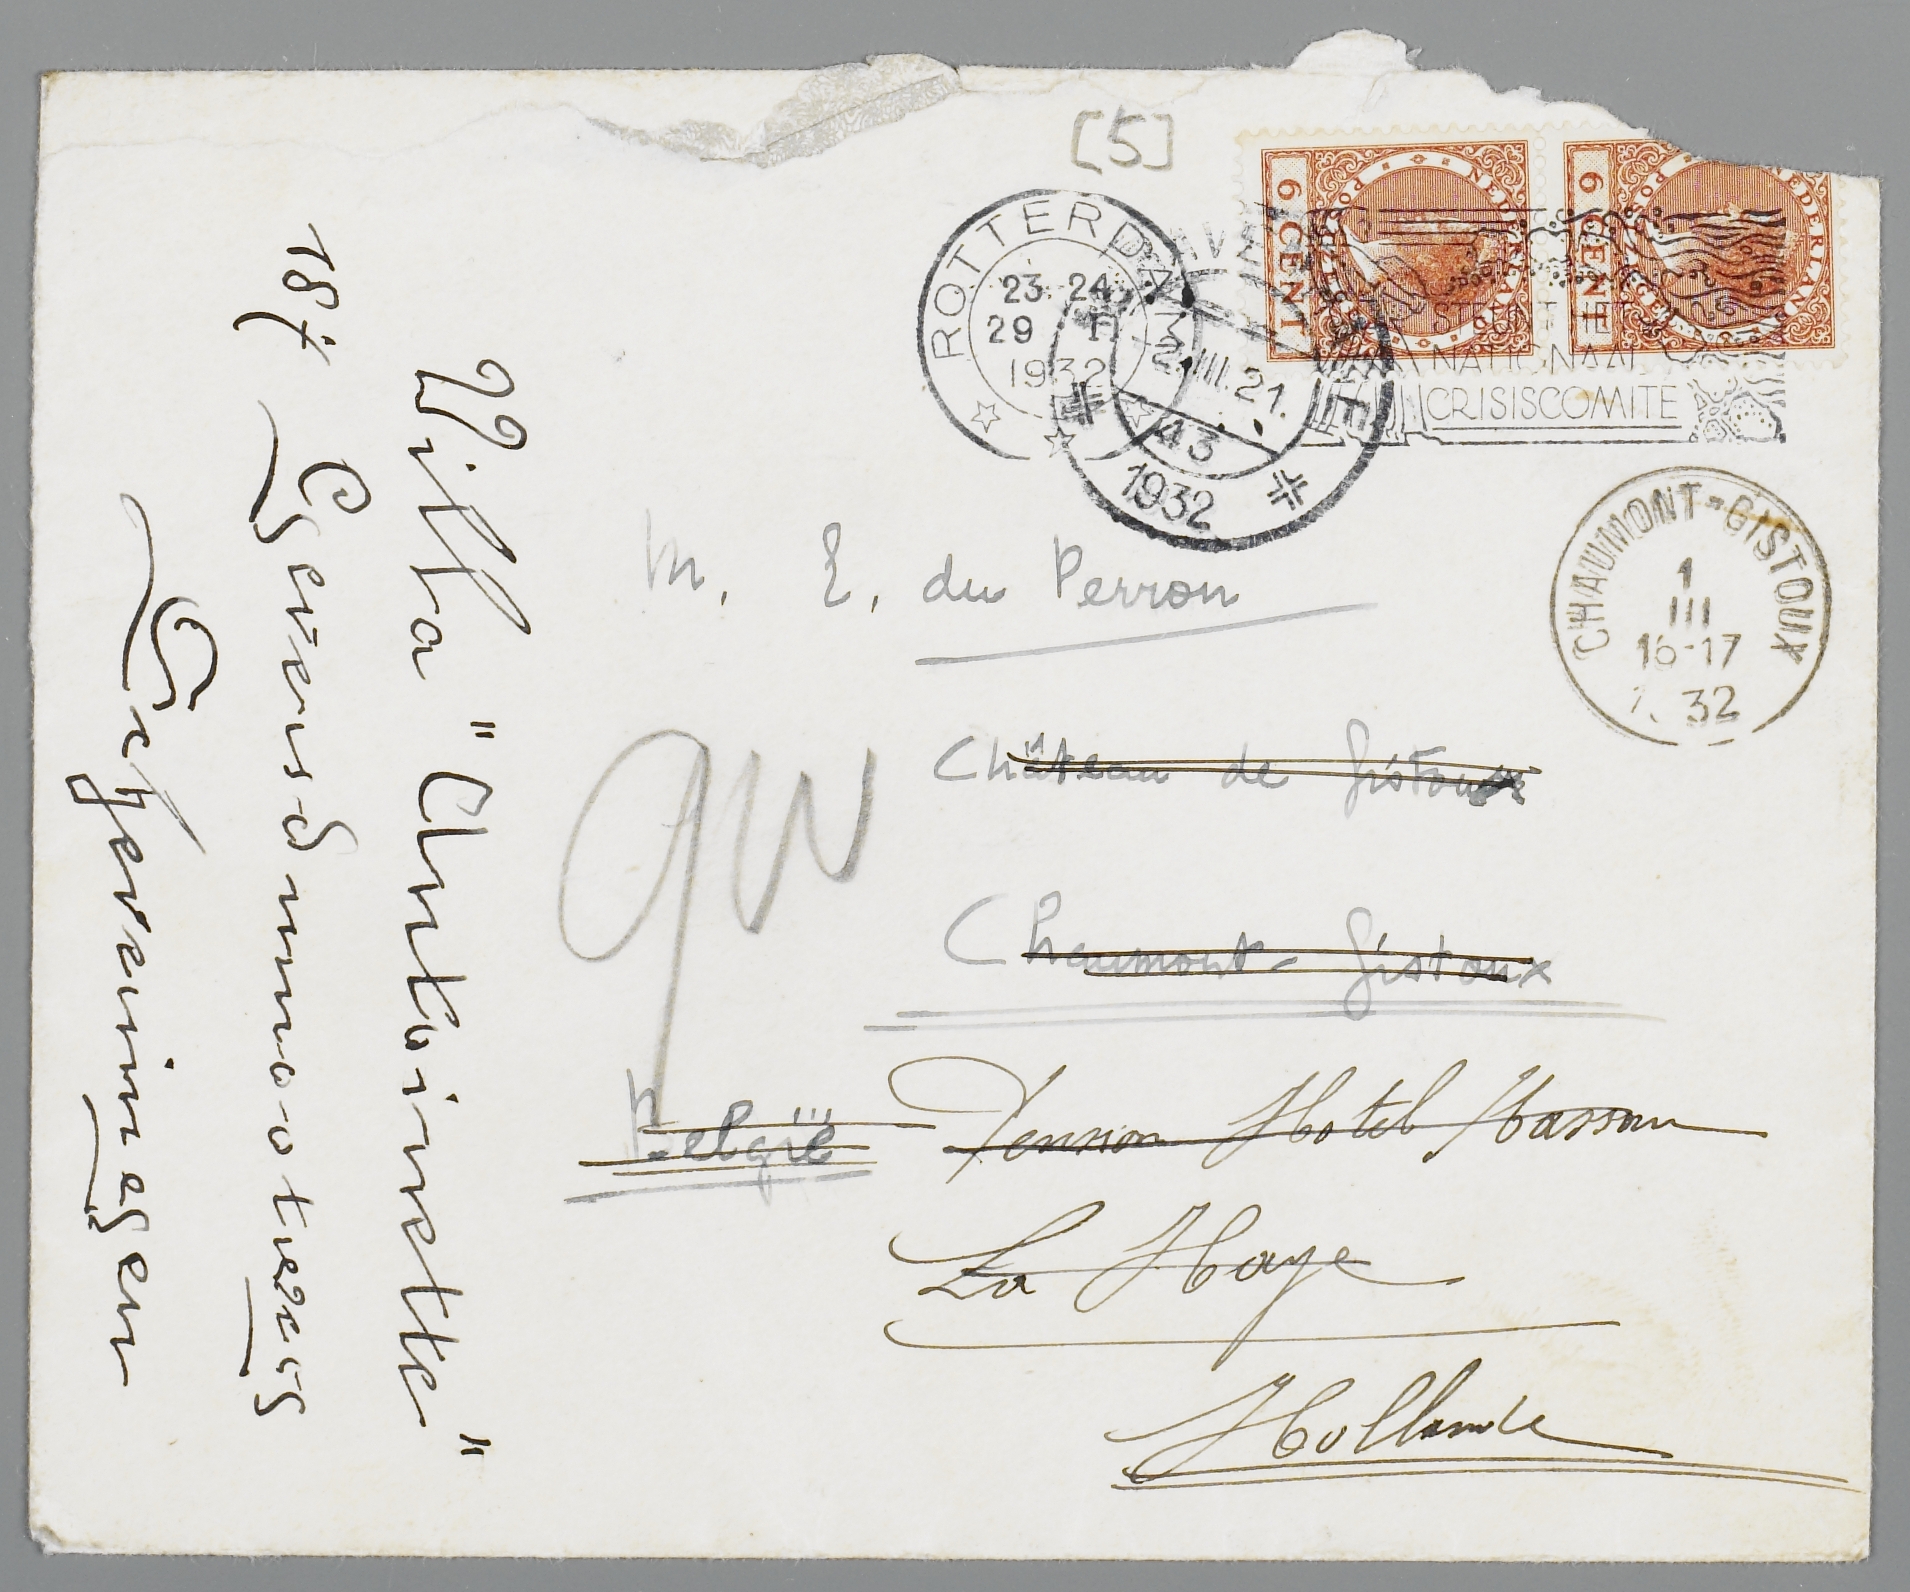 [5]
ROTTERDAM
23-24
29 II
1932
6 CENT
NEDERLAND
6 CENT
NEDERLAND
STEUNT HET
NATIONAAL
CRISISCOMITE
2.III.21.
43
1932
CHAUMONT-GISTOUX
1
III
16-17
1932
M. E. du Perron
Château de Gistoux
Chaumont-Gistoux
België
Pension Hotel
La Haye
Hollande
Villa "
Scheveningen